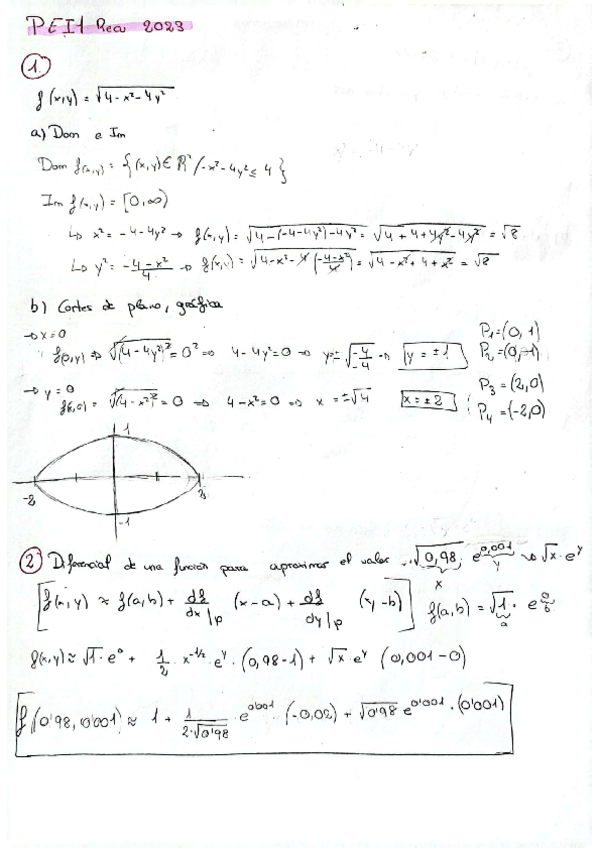 PEI1 Rec 2023
1.
f(x,y) = √(4-x²-4y²)
a) Dom e Im
Dom f(x,y) = {(x,y) ∈ R² / -x²-4y² ≤ 4}
Im f(x,y) = [0,∞)
↳ x² = -4-4y² → f(x,y) = √(4-(-4-4y²)-4y²) = √(4+4+4y²-4y²) = √8
↳ y² = (-4-x²)/4 → f(x,y) = √(4-x²-4((-4-x²)/4)) = √(4-x²+4+x²) = √8
b) Cortes de plano, gráfica
→ x=0
f(0,y) ⇒ √(4-4y²)² = 0² ⇒ 4-4y²=0 ⇒ y=±√(-4/-4) ⇒ y=±1
P₁=(0,1)
P₂=(0,-1)
→ y=0
f(x,0) = √(4-x²)² = 0 ⇒ 4-x²=0 ⇒ x=±√4 x=±2
P₃=(2,0)
P₄=(-2,0)
1
-2
2
-1
2 Diferencial de una función para aproximar el valor √0,98 · e^0,001 → √x · e^y
x y
f(x,y) ≈ f(a,b) + df/dx|p (x-a) + df/dy|p (y-b)
f(a,b) = √1 · e^0
a b
f(x,y) ≈ √1 · e^0 + 1/2 · x^(-1/2) · e^y · (0,98-1) + √x · e^y (0,001-0)
f(0'98, 0'001) ≈ 1 + 1/(2·√0'98) · e^0'001 (-0,02) + √0'98 e^0'001 · (0'001)